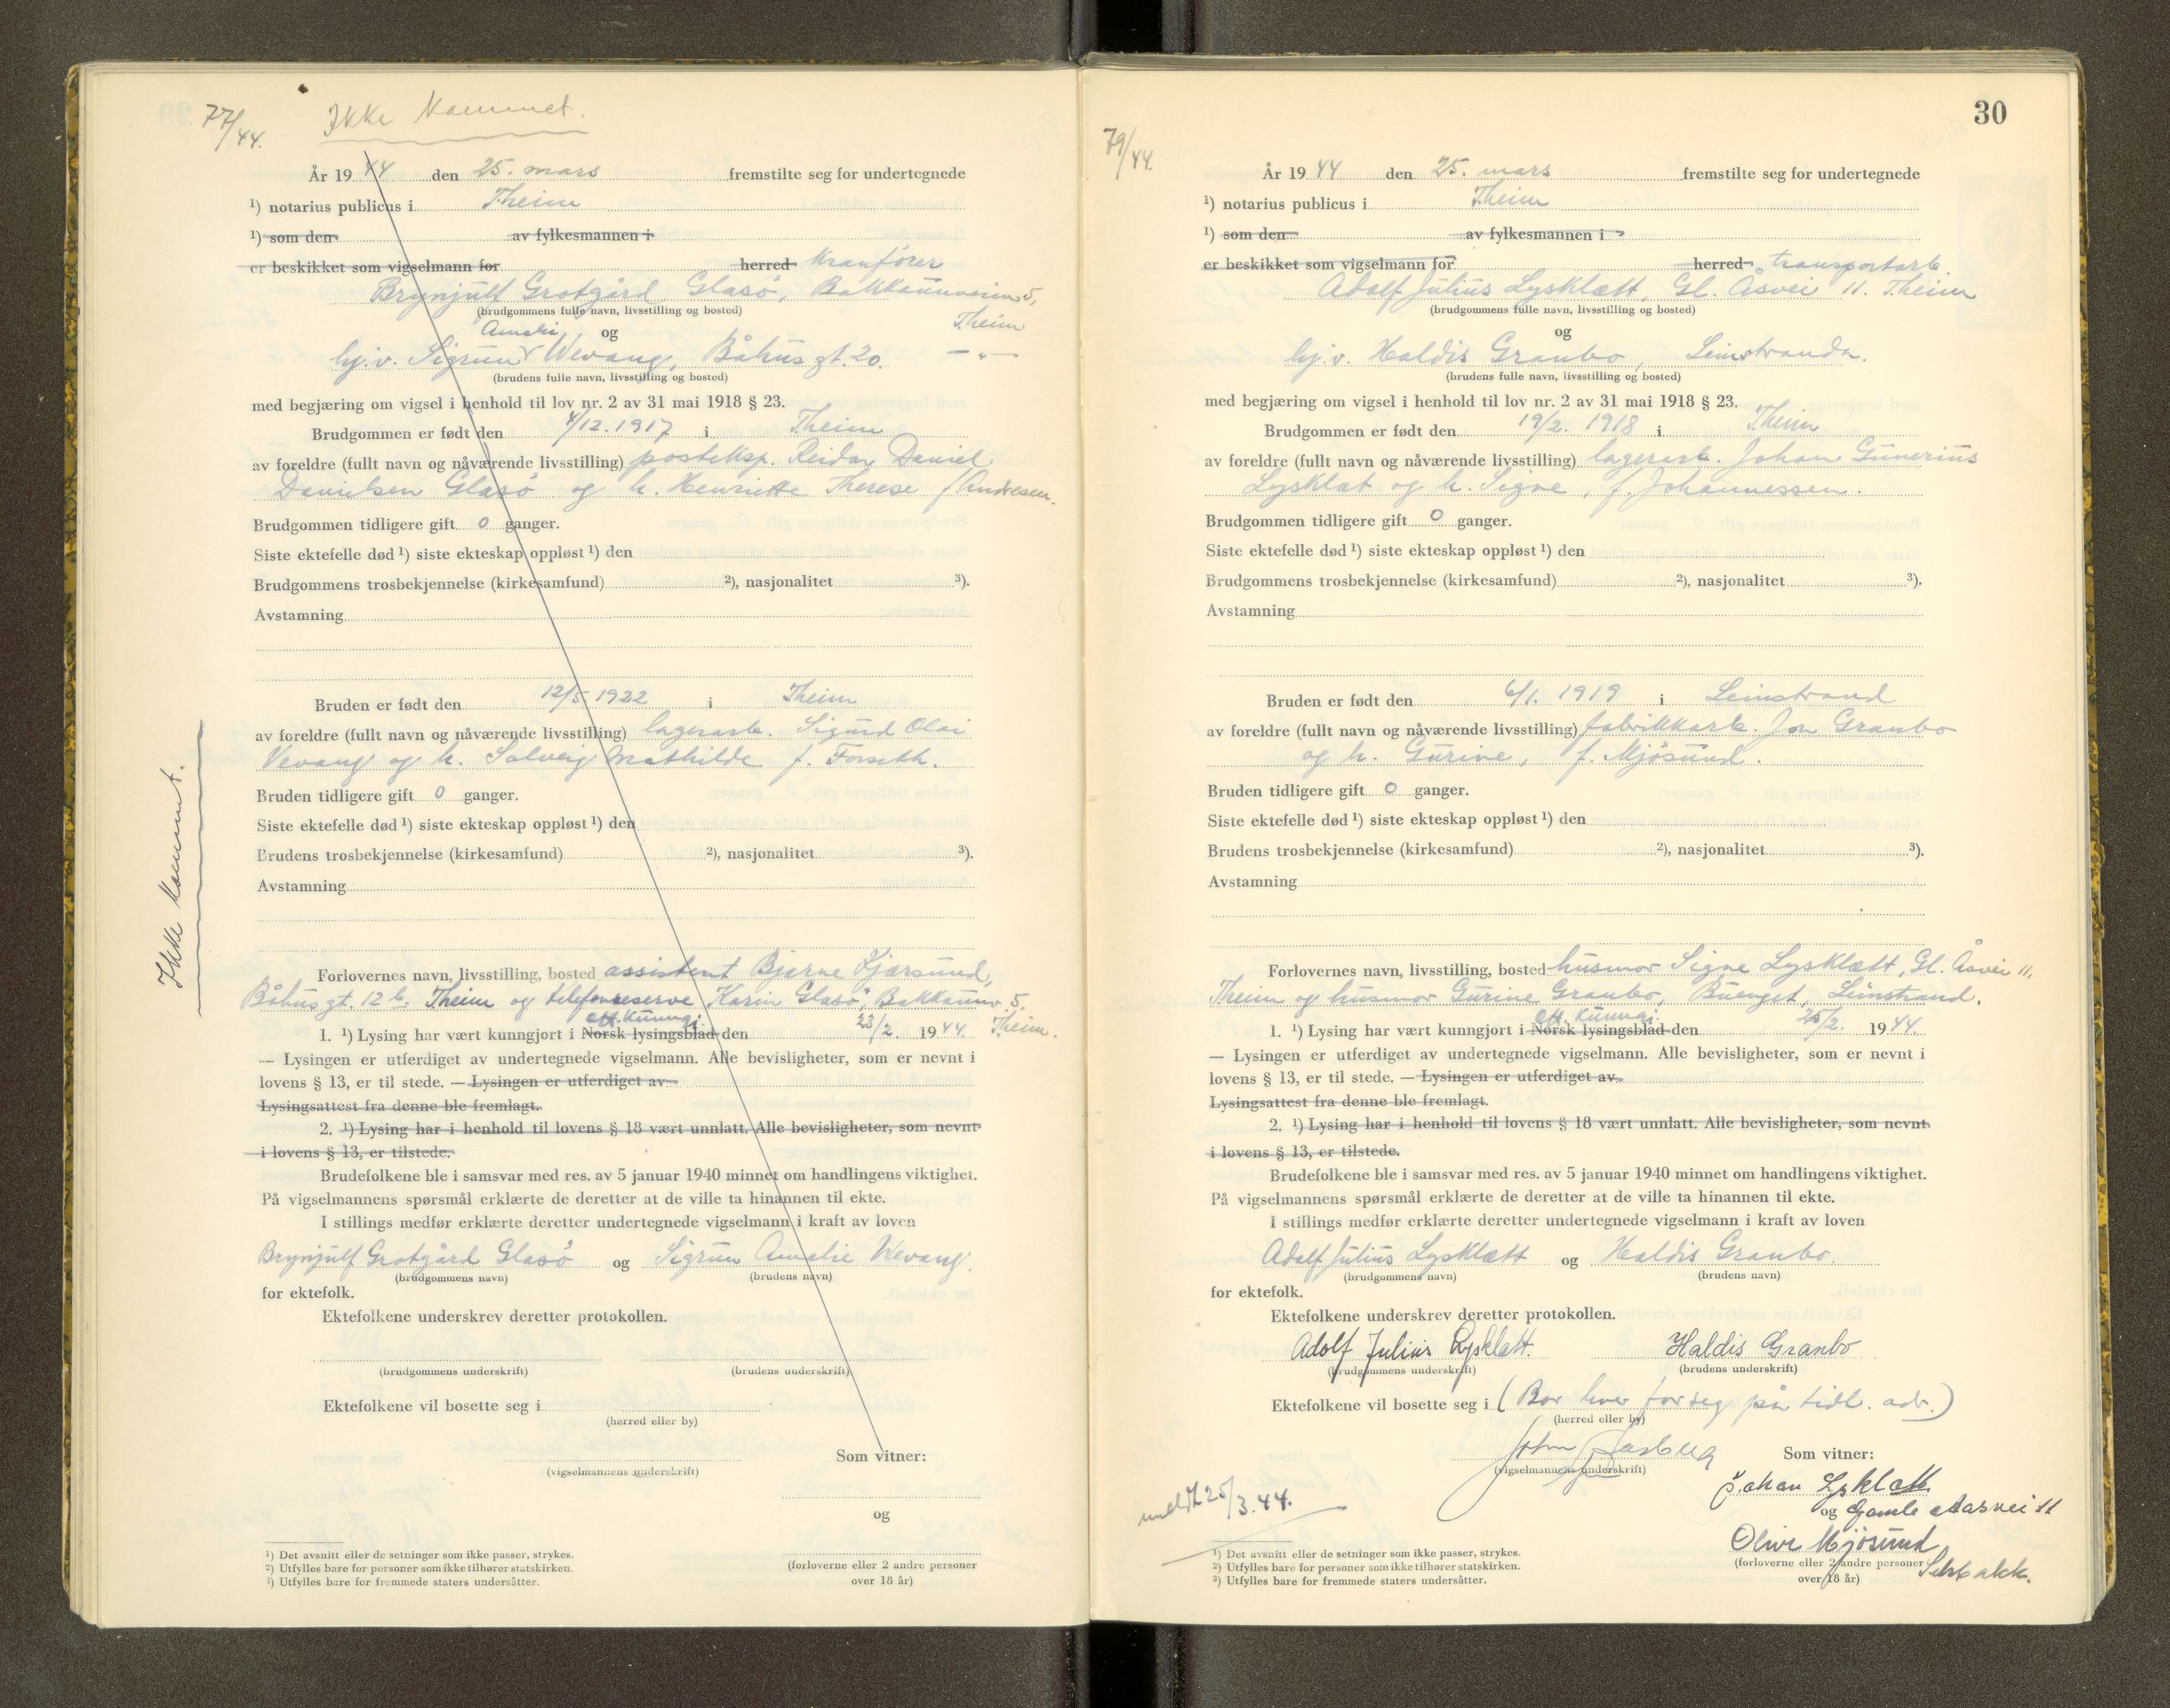 77/44.
Ikke kommet.
År 1944 den 25. mars fremstilte seg for undertegnede
¹) notarius publicus i Theim
¹) som den av fylkesmannen i
er beskikket som vigselmann for herred kranfører
Brynjulf Grotgård Glasö, Bakkaunveien 5,
(brudgommens fulle navn, livsstilling og bosted) Theim
Amalie og
hj.v. Sigrun Wevang, Båhus gt. 20. —"—
(brudens fulle navn, livsstilling og bosted)
med begjæring om vigsel i henhold til lov nr. 2 av 31 mai 1918 § 23.
Brudgommen er født den 4/12. 1917 i Theim
av foreldre (fullt navn og nåværende livsstilling) posteksp. Reidar Daniel
Danielsen Glasö og h. Henriette Therese f. Andresen.
Brudgommen tidligere gift 0 ganger.
Siste ektefelle død ¹) siste ekteskap oppløst ¹) den
Brudgommens trosbekjennelse (kirkesamfund) ²), nasjonalitet ³).
Avstamning
Bruden er født den 12/5 1922 i Theim
av foreldre (fullt navn og nåværende livsstilling) lagerarb. Sigurd Olai
Vevang og h. Solveig Mathilde f. Forseth.
Bruden tidligere gift 0 ganger.
Siste ektefelle død ¹) siste ekteskap oppløst ¹) den
Brudens trosbekjennelse (kirkesamfund) ²), nasjonalitet ³).
Avstamning
Ikke kommet.
Forlovernes navn, livsstilling, bosted assistent Bjarne Kjørsund,
Båhus gt. 12 b. Theim og telefonreserve Karin Glasö, Bakkaunv. 5,
off. kunngj. Theim.
1. ¹) Lysing har vært kunngjort i Norsk lysingsblad den 23/2. 1944.
— Lysingen er utferdiget av undertegnede vigselmann. Alle bevisligheter, som er nevnt i
lovens § 13, er til stede. — Lysingen er utferdiget av
Lysingsattest fra denne ble fremlagt.
2. ¹) Lysing har i henhold til lovens § 18 vært unnlatt. Alle bevisligheter, som nevnt
i lovens § 13, er tilstede.
Brudefolkene ble i samsvar med res. av 5 januar 1940 minnet om handlingens viktighet.
På vigselmannens spørsmål erklærte de deretter at de ville ta hinannen til ekte.
I stillings medfør erklærte deretter undertegnede vigselmann i kraft av loven
Brynjulf Grotgård Glasö og Sigrun Amalie Wevang.
(brudgommens navn) (brudens navn)
for ektefolk.
Ektefolkene underskrev deretter protokollen.
(brudgommens underskrift) (brudens underskrift)
Ektefolkene vil bosette seg i
(herred eller by)
Som vitner:
(vigselmannens underskrift)
og
(forloverne eller 2 andre personer
over 18 år)
¹) Det avsnitt eller de setninger som ikke passer, strykes.
²) Utfylles bare for personer som ikke tilhører statskirken.
³) Utfylles bare for fremmede staters undersåtter.
30
79/44.
År 1944 den 25. mars fremstilte seg for undertegnede
¹) notarius publicus i Theim
¹) som den av fylkesmannen i
er beskikket som vigselmann for herred transportarb.
Adolf Julius Lysklætt, Gl. Åsvei 11. Theim
(brudgommens fulle navn, livsstilling og bosted)
og
hj.v. Haldis Granbo, Leinstranda.
(brudens fulle navn, livsstilling og bosted)
med begjæring om vigsel i henhold til lov nr. 2 av 31 mai 1918 § 23.
Brudgommen er født den 19/2. 1918 i Theim
av foreldre (fullt navn og nåværende livsstilling) lagerarb. Johan Gunerius
Lysklæt og h. Signe, f. Johannessen.
Brudgommen tidligere gift 0 ganger.
Siste ektefelle død ¹) siste ekteskap oppløst ¹) den
Brudgommens trosbekjennelse (kirkesamfund) ²), nasjonalitet ³).
Avstamning
Bruden er født den 6/1. 1919 i Leinstrand
av foreldre (fullt navn og nåværende livsstilling) fabrikkarb. Jon Granbo
og h. Gurine, f. Mjösund.
Bruden tidligere gift 0 ganger.
Siste ektefelle død ¹) siste ekteskap oppløst ¹) den
Brudens trosbekjennelse (kirkesamfund) ²), nasjonalitet ³).
Avstamning
Forlovernes navn, livsstilling, bosted husmor Signe Lysklætt, Gl. Åsvei 11,
Theim og husmor Gurine Granbo, Buenget, Leinstrand.
off. kunngj.
1. ¹) Lysing har vært kunngjort i Norsk lysingsblad den 25/2. 1944
— Lysingen er utferdiget av undertegnede vigselmann. Alle bevisligheter, som er nevnt i
lovens § 13, er til stede. — Lysingen er utferdiget av
Lysingsattest fra denne ble fremlagt.
2. ¹) Lysing har i henhold til lovens § 18 vært unnlatt. Alle bevisligheter, som nevnt
i lovens § 13, er tilstede.
Brudefolkene ble i samsvar med res. av 5 januar 1940 minnet om handlingens viktighet.
På vigselmannens spørsmål erklærte de deretter at de ville ta hinannen til ekte.
I stillings medfør erklærte deretter undertegnede vigselmann i kraft av loven
Adolf Julius Lysklætt og Haldis Granbo.
(brudgommens navn) (brudens navn)
for ektefolk.
Ektefolkene underskrev deretter protokollen.
Adolf Julius Lysklætt. Haldis Granbo
(brudgommens underskrift) (brudens underskrift)
Ektefolkene vil bosette seg i (Bor hver for seg på tidl. adr.)
(herred eller by)
John
(vigselmannens underskrift)
Som vitner:
Johan Lysklætt
og Gamle Aasvei 11
Olive Mjösund
(forloverne eller 2 andre personer
over 18 år)
meldt 25/3.44.
¹) Det avsnitt eller de setninger som ikke passer, strykes.
²) Utfylles bare for personer som ikke tilhører statskirken.
³) Utfylles bare for fremmede staters undersåtter.